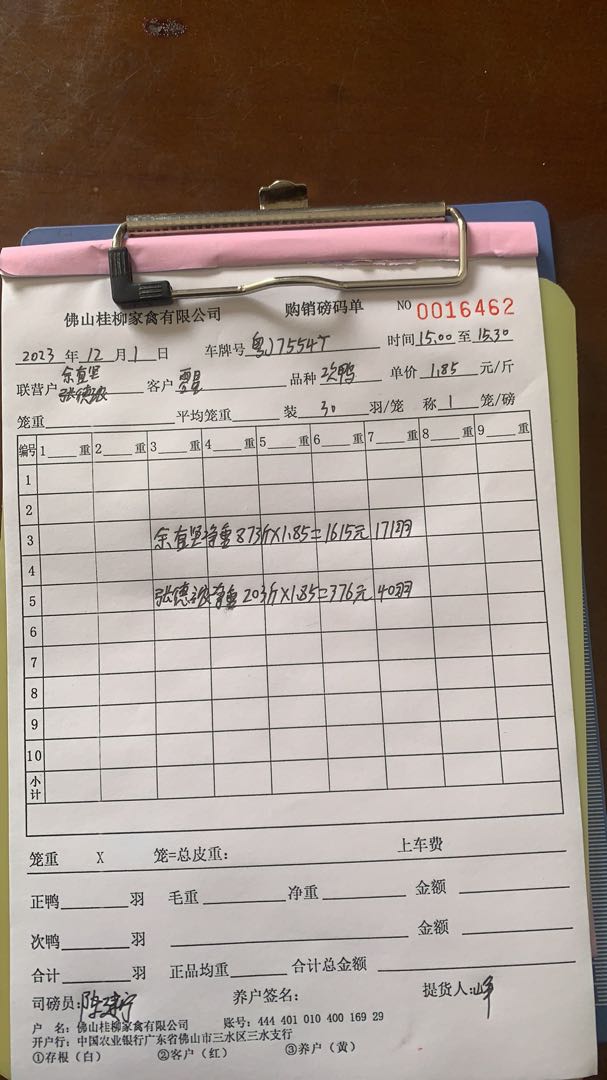 佛山桂柳家禽有限公司 购销磅码单 NO 0016462
2023 年 12 月 1 日 车牌号 粤J7554T 时间 15:00 至 15:30
联营户 余直坚 张德波 客户 品种 次鸭 单价 1.85 元/斤
笼重 平均笼重 装 30 羽/笼 称 1 笼/磅
编号 1 重 2 重 3 重 4 重 5 重 6 重 7 重 8 重 9 重
1
2
3 余直坚净重873斤×1.85=1615元 171羽
4
5 张德波净重203斤×1.85=376元 40羽
6
7
8
9
10
小计
笼重 X 笼=总皮重: 上车费
正鸭 羽 毛重 净重 金额
次鸭 羽 金额
合计 羽 正品均重 合计总金额
司磅员: 养户签名: 提货人:峥
户 名: 佛山桂柳家禽有限公司 账号: 444 401 010 400 169 29
开户行: 中国农业银行广东省佛山市三水区三水支行
①存根(白) ②客户(红) ③养户(黄)